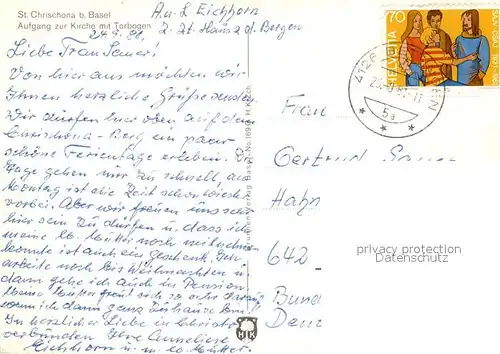 St. Chrischona b. Basel
Aufgang zur Kirche mit Torbogen
24.9.81.
A. u. L. Eichhorn
z. Zt. Haus z. d. Bergen
Liebe Frau Sauer!
Von hier aus möchten wir
Ihnen herzliche Grüße senden.
Wir dürfen hier oben auf dem
Chrischona-Berg ein paar
schöne Ferientage erleben. Die
Tage gehen nur zu schnell, am
Montag ist die Zeit schon wieder
vorbei. Aber wir freuen uns sehr
hier sein zu dürfen u. dass ich
meine lb. Mutter noch mitnehmen
konnte ist auch ein Geschenk. Ich
arbeite noch bis Weihnachten u.
dann gehe ich auch in Pension.
Meine Mutter freut sich so sehr darauf
wenn ich dann ganz zuhause bin.
In herzlicher Liebe in Christo
verbunden Ihre Anneliese
Eichhorn u. m. lb. Mutter.
HELVETIA
70
4126
5a
HK
Frau
Gertrud Sauer
Hahn
642
privacy protection
Datenschutz